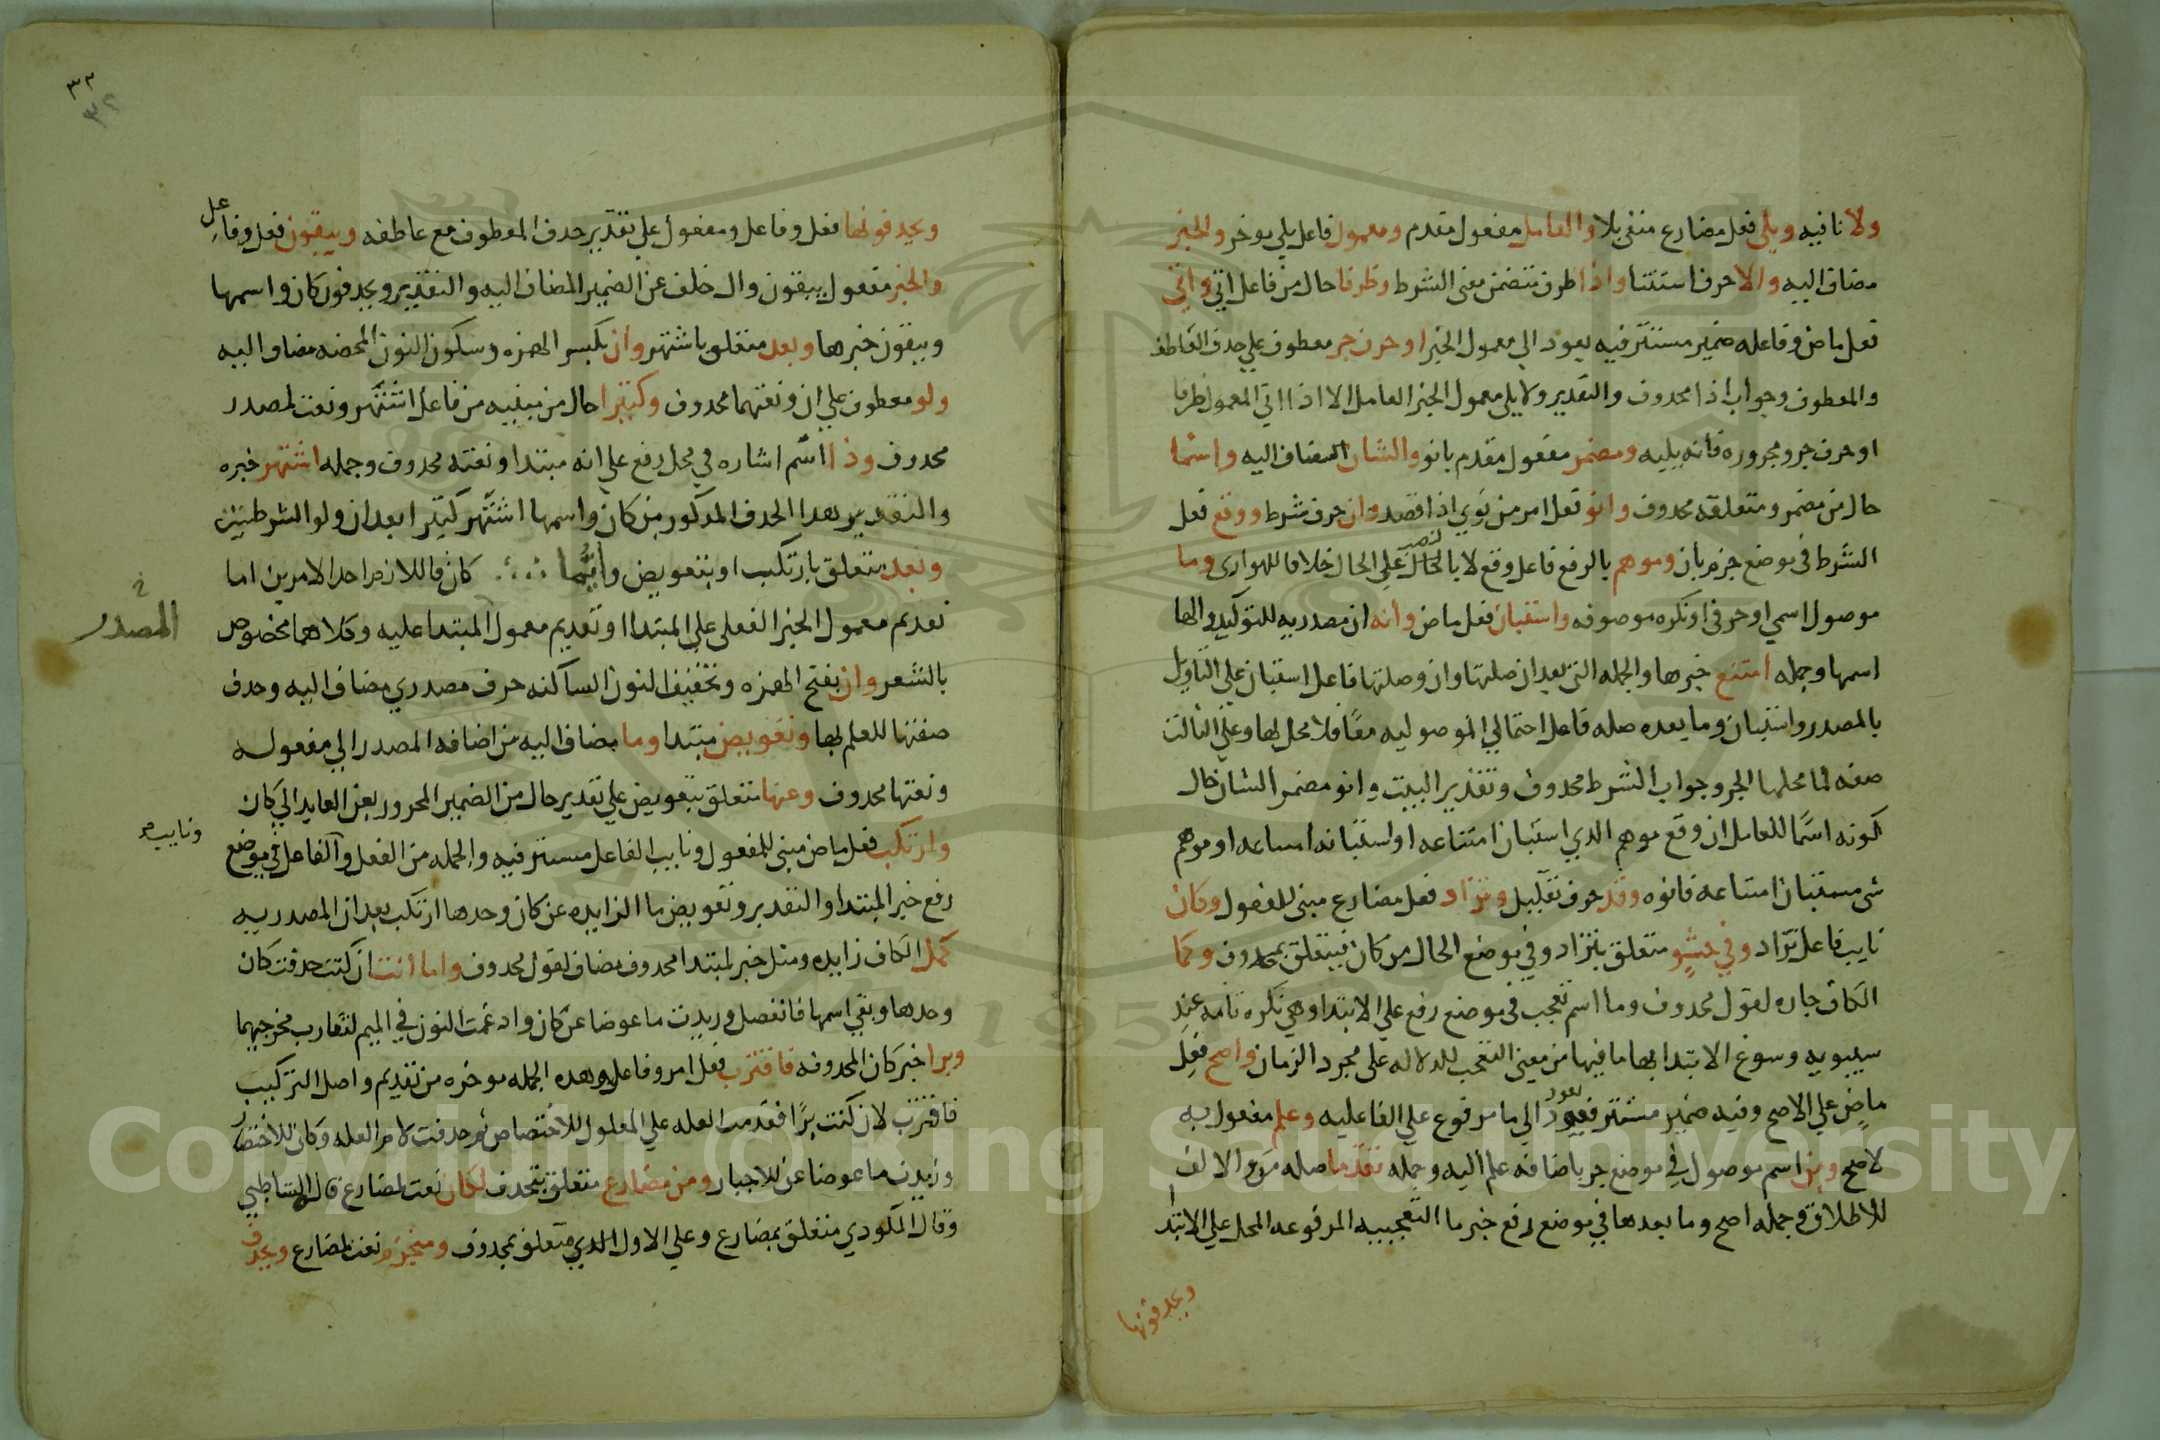 ولا نافيه ويلي فعل مضارع منفي بلا والعامل مفعول مقدم ومعمول فاعل يلي موخر والخبر
مضاف اليه والا حرف استثنا واذا ظرف تتضمن معنى الشرط وظرفا حال من فاعل اتي واتي
فعل ماض وفاعله ضمير مستتر فيه يعود الي معمول الخبر اوحرف جر معطوف علي حذف العاطف
والمعطوف وجواب اذا محذوف والتقدير ولا يلي معمول الخبر العامل الا اذا اتي المعمول ظرفا
اوحرف جر ومجروره فانه يليه ومضمر مفعول مقدم بانو والشان المضاف اليه واسما
حال من مضمر ومتعلقه محذوف وانو فعل امر من نوي اذا قصد وان حرف شرط ووقع فعل
الشرط في موضع جزم بان وموهم بالرفع فاعل وقع لا بالنصب علي الحال خلافا للهواري وما
موصول اسمي اوحرفي اونكره موصوفه واستبان فعل ماض وانه ان مصدريه للتوكيد والها
اسمها وجمله امتنع خبرها والجمله التي بعد ان صلتها وان وصلتها فاعل استبان علي التاويل
بالمصدر واستبان وما بعده صله فاعل احتمالي الموصوليه معًا فلا محل لها وعلي الثالث
صفه لما محلها الجر وجواب الشرط محذوف وتقدير البيت وانو مضمر الشان حال
كونه اسمًا للعامل ان وقع موهم الذي استبان امتناعه او استبانه امتناعه او موهم
شي مستبان امتناعه فانوه وقد حرف تقليل وتزاد فعل مضارع مبني للمفعول وكان
نايب فاعل تزاد وفي حشو متعلق بتزاد وفي موضع الحال من كان فيتعلق بمحذوف وكما
الكاف جاره لقول محذوف وما اسم تعجب في موضع رفع علي الابتدا وهي نكره تامه عند
سيبويه وسوغ الابتدا بها ما فيها من معنى التعجب للدلاله على مجرد الزمان واصح فعل
ماض علي الاصح وفيه ضمير مستتر يعود الي ما مرفوع علي الفاعليه وعلم مفعول به
لاصح ومن اسم موصول في موضع جر باضافه علم اليه وجمله تقدما صله من والالف
للاطلاق وجمله اصح وما بعدها في موضع رفع خبر ما التعجبيه المرفوعه المحل علي الابتدا
ويحذفونها
٣٢
٣٢
ويحذفونها فعل وفاعل ومفعول علي تقدير حذف المعطوف مع عاطفه ويبقون فعل وفاعل
والخبر مفعول يبقون وال خلف عن الضمير المضاف اليه والتقدير ويحذفون كان واسمها
ويبقون خبرها وبعد متعلق باشتهر وان بكسر الهمزه وسكون النون المحضه مضاف اليه
ولو معطوف علي ان ونعتهما محذوف وكثيرا حال من فاعل اشتهر ونعت لمصدر
محذوف وذا اسم اشاره في محل رفع علي انه مبتدا ونعته محذوف وجمله اشتهر خبره
والتقدير بهدا الحدف المدكور من كان واسمها اشتهر كثيرا بعد ان ولو الشرطيتين
وبعد متعلق بارتكب اوبتعويض وايما كان فاللازم احد الامرين اما
تقديم معمول الخبر الفعلي علي المبتدا اوتقديم معمول المبتدا عليه وكلاهما مخصوص
المصدر
بالشعر وان بفتح الهمزه وتخفيف النون الساكنه حرف مصدري مضاف اليه وحدف
صفتها للعلم بها وتعويض مبتدا وما مضاف اليه من اضافه المصدر الي مفعوله
ونعتها محدوف وعنها متعلق بتعويض علي تقدير حال من الضمير المجرور بعن العايد الي كان
وارتكب فعل ماض مبني للمفعول ونايب الفاعل مستتر فيه والجمله من الفعل والفاعل في موضع
ونايبه
رفع خبر المبتدا والتقدير وتعويض ما الزايده عن كان وحدها ارتكب بعد ان المصدريه
كمثل الكاف زايده ومثل خبر لمبتدا محدوف مضاف لقول محدوف واما انت ان كنت حدفت كان
وحدها وبقي اسمها فانفصل وزيدت ما عوضا عن كان وادغمت النون في الميم لتقارب مخرجيهما
وبرا خبر كان المحدوفه فاقترب فعل امر وفاعل وهده الجمله موخره من تقديم واصل التركيب
فاقترب لان كنت برًا فقدمت العله علي المعلول للاختصاص ثم حدفت لام العله وكان للاختصار
وزيدت ما عوضا عن للاجبار ومن مضارع متعلق بتحدف لكان نعت لمضارع قال الشاطبي
وقال المكودي متعلق بمضارع وعلي الاول الدي متعلق بمحدوف ومنجزم نعت لمضارع ويحدف